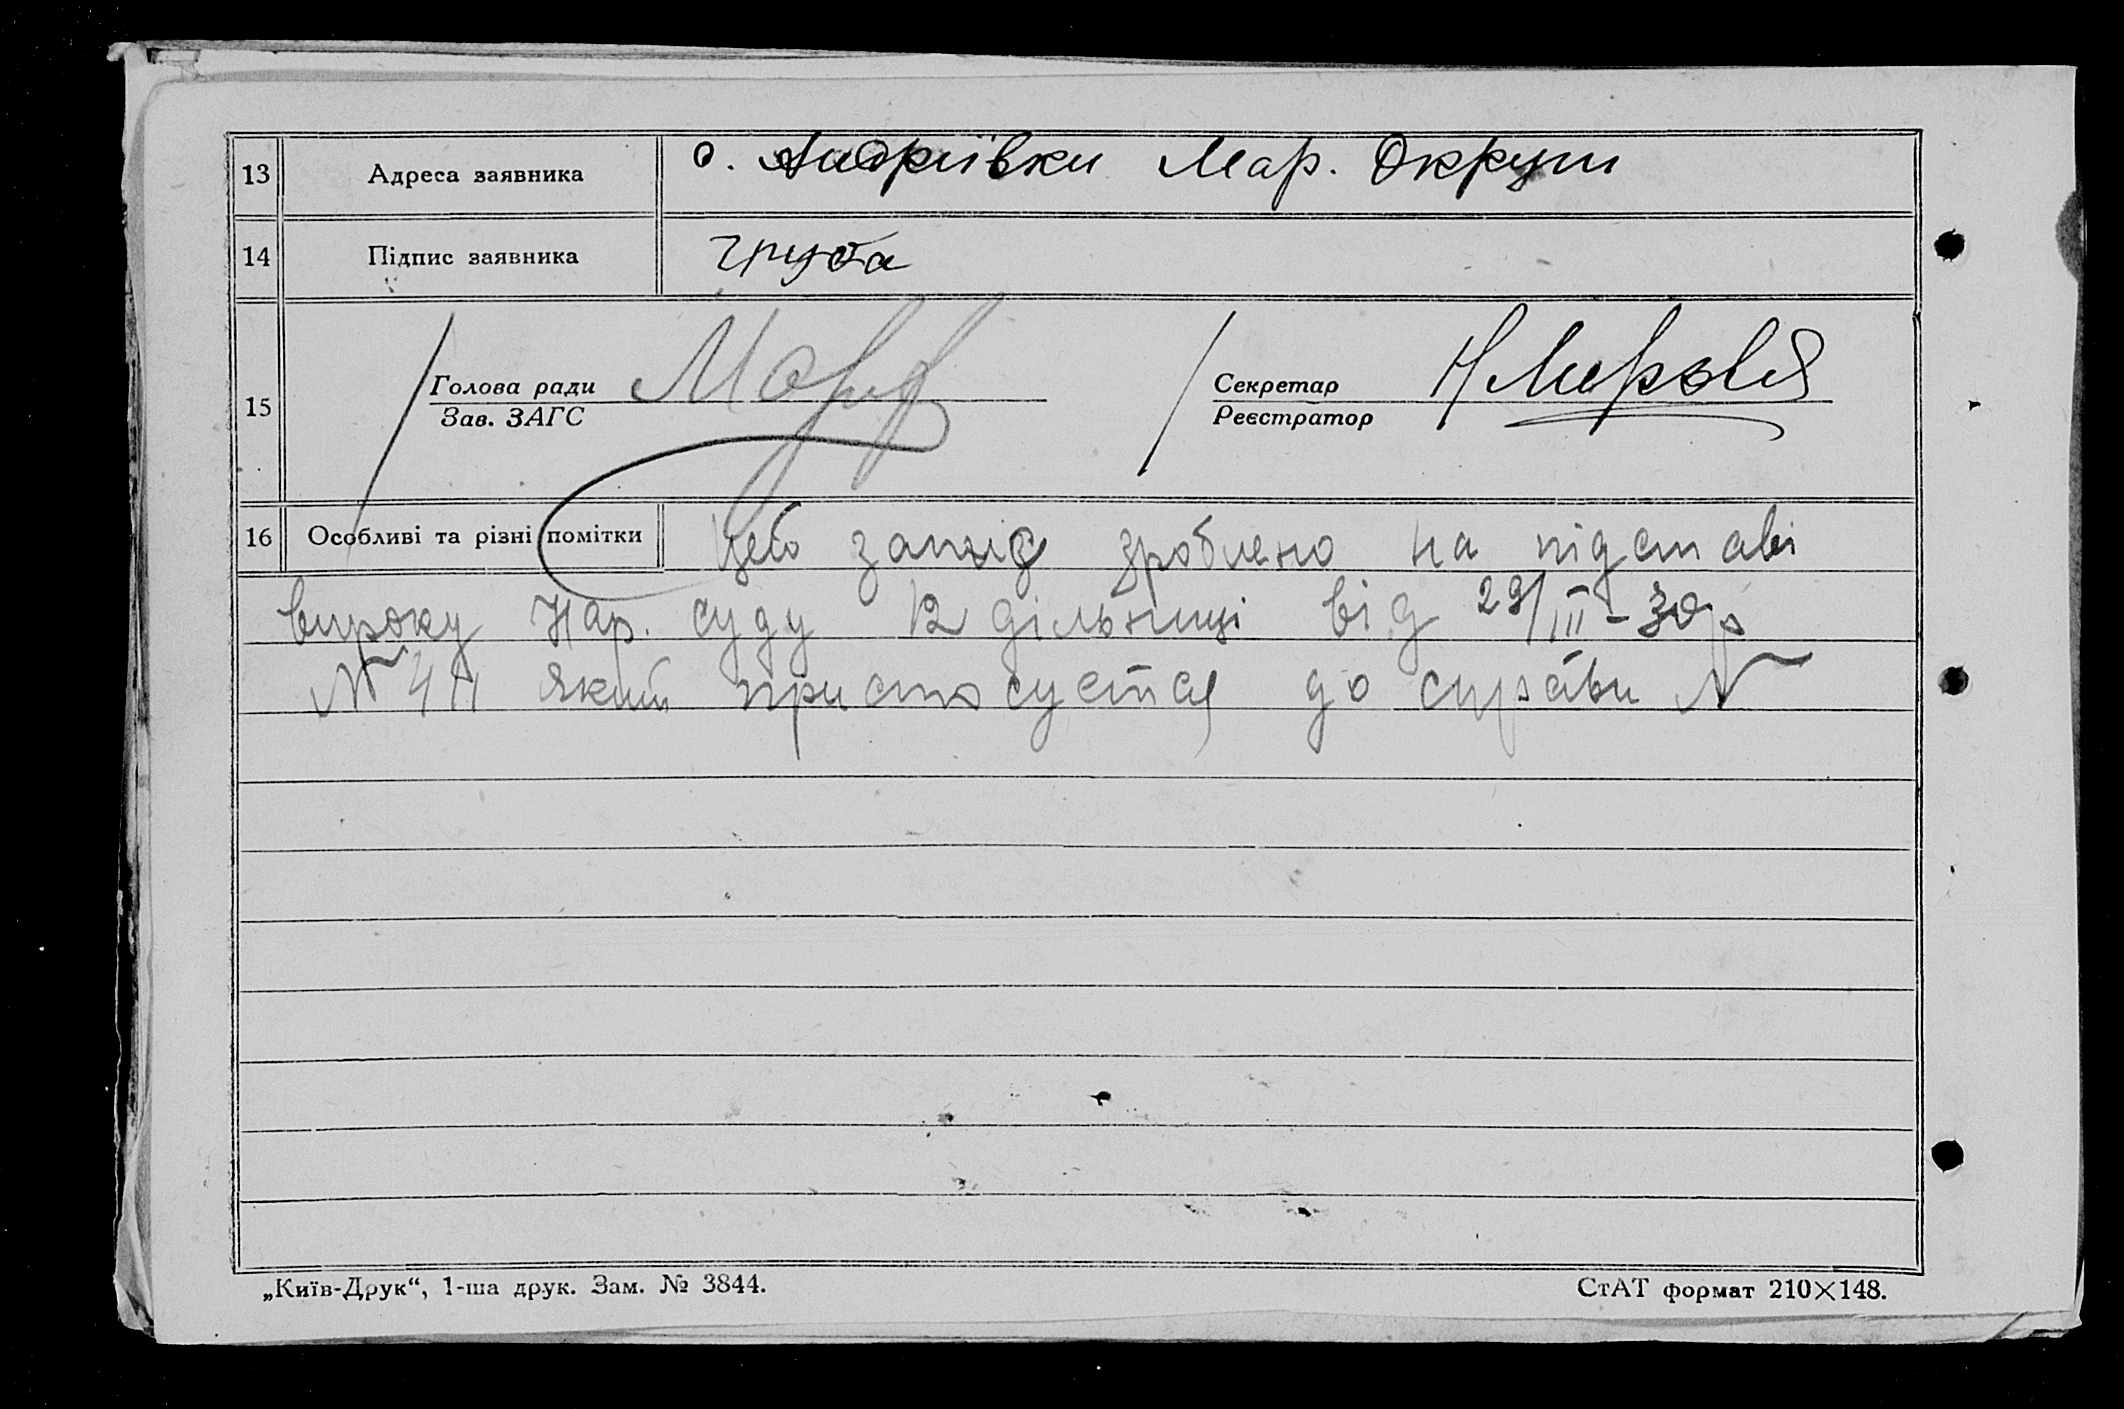 13 Адреса заявника с. Андріївки Мар. Округи
14 Підпис заявника груба
15 Голова ради Секретар
Зав. ЗАГС Реєстратор
16 Особливі та різні помітки Цей запис зроблено на підставі
вироку Нар. суду 12 дільниці від 29/III-30р
№ який пристосуется до справи N
„Київ-Друк“, 1-ша друк. Зам. № 3844. СтАТ формат 210×148.